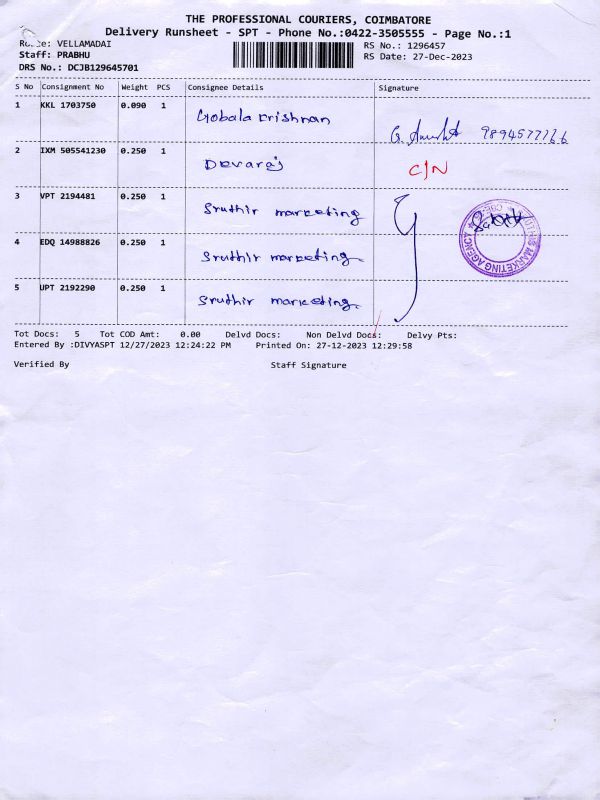 THE PROFESSIONAL COURIERS, COIMBATORE
Delivery Runsheet - SPT - Phone No.:0422-3505555 - Page No.:1
Route: VELLAMADAI
Staff: PRABHU
DRS No.: DCJB129645701
RS No.: 1296457
RS Date: 27-Dec-2023
S No Consignment No Weight PCS Consignee Details Signature
1 KKL 1703750 0.090 1 Gobala krishnan
2 IXM 505541230 0.250 1 Devaraj C/N
3 VPT 2194481 0.250 1 Sruthir marketing
4 EDQ 14988826 0.250 1 Sruthir marketing
5 UPT 2192290 0.250 1 Sruthir marketing
MARKETING AGENCY
Tot Docs: 5 Tot COD Amt: 0.00 Delvd Docs: Non Delvd Docs: Delvy Pts:
Entered By :DIVYASPT 12/27/2023 12:24:22 PM Printed On: 27-12-2023 12:29:58
Verified By Staff Signature